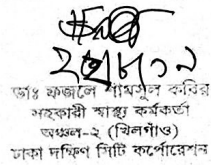 ডাঃ ফজলে শামসুল কবির
সহকারী স্বাস্থ্য কর্মকর্তা
অঞ্চল-২ (খিলগাঁও)
ঢাকা দক্ষিণ সিটি কর্পোরেশন